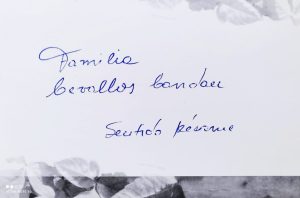 Familia
Cevallos Candau
Sentido Pésame